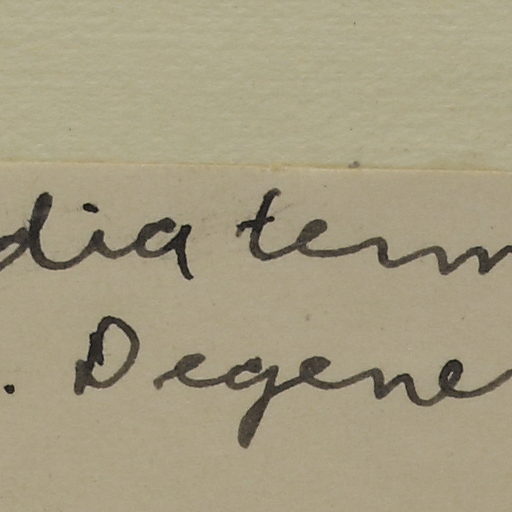 dia term
. Degene